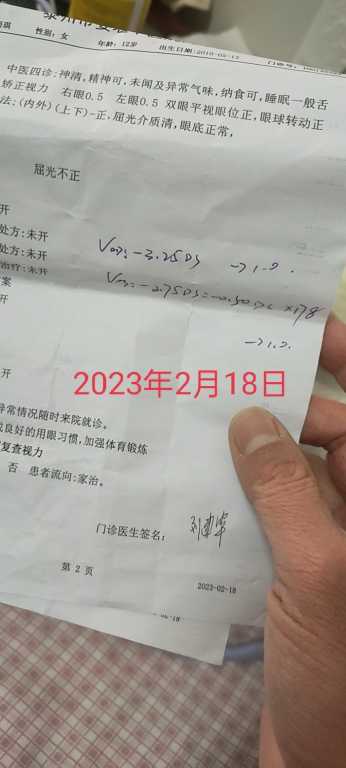 性别：女
年龄：12岁
出生日期:2010-02-12
中医四诊：神清，精神可，未闻及异常气味，纳食可，睡眠一般舌
矫正视力 右眼0.5 左眼0.5 双眼平视眼位正，眼球转动正
法：(内外)(上下)-正，屈光介质清，眼底正常，
屈光不正
开
处方：未开
处方：未开
治疗：未开
案
开
Vod: -3.25DS → 1.0.
Vos: -2.75DS = -0.50DC ×178
→ 1.0.
2023年2月18日
开
异常情况随时来院就诊。
良好的用眼习惯，加强体育锻炼
复查视力
否 患者流向：家治。
门诊医生签名：
第 2 页
2023-02-18